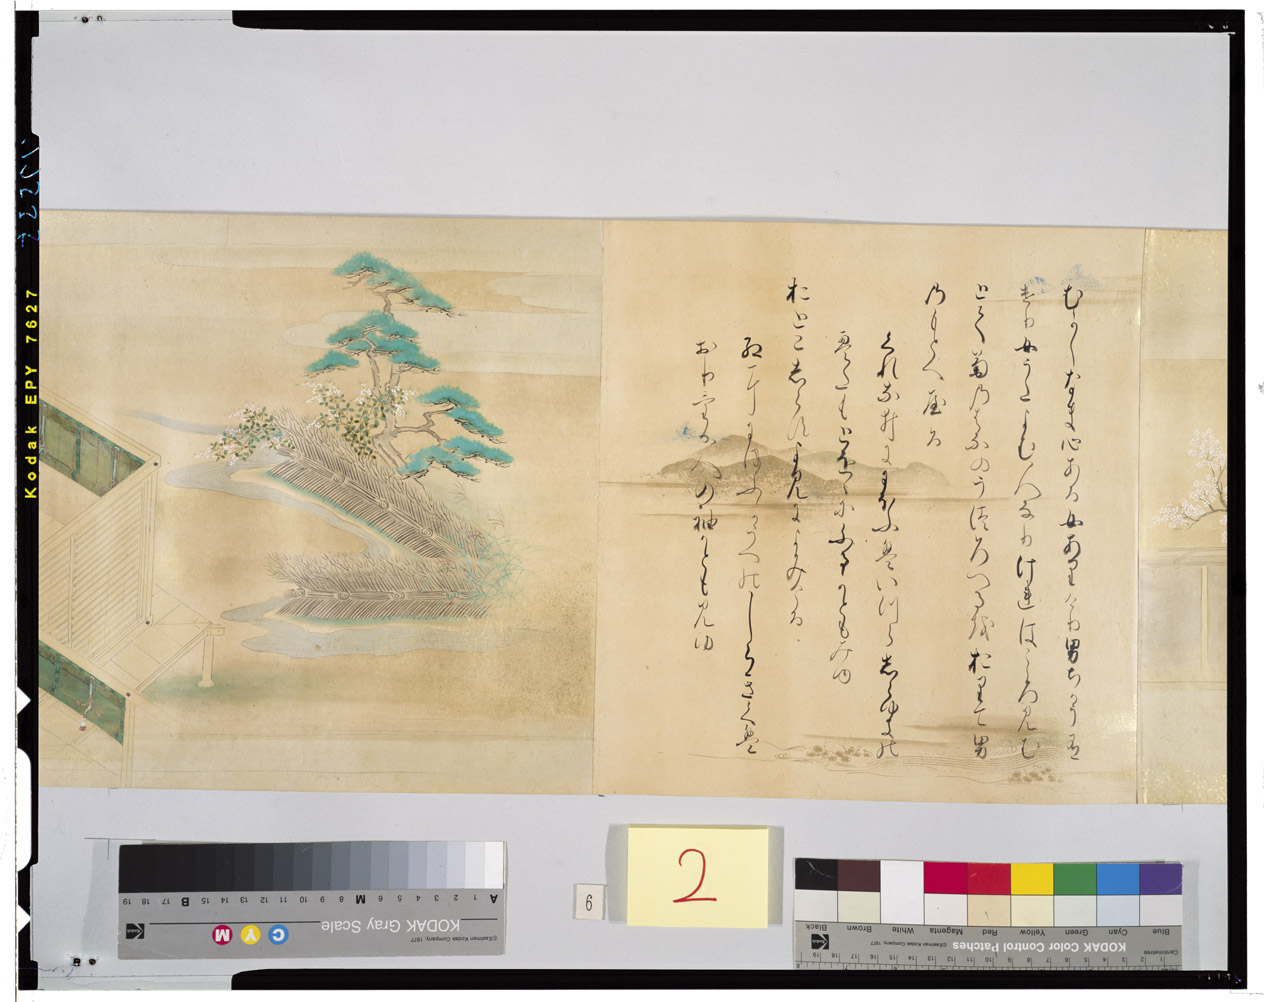 むかしなま心ある女ありけり男ちかう有
けり女うたよむ人なりけれはこゝろ見む
とて菊の花のうつろへるをおりて男
のもとへやる
くれなゐににほふはいつらしらゆきの
えたもとをゝにふるかともみゆ
おとこしらすよみによみける
紅ににほふかうへのしらきくは
おりける人の袖かとも見ゆ
Kodak EPY 7627
2
6
KODAK Gray Scale
©Eastman Kodak Company, 1977
C Y M
A 1 2 3 4 5 6 M 8 9 10 11 12 13 14 15 B 17 18 19
KODAK Color Control Patches
©Eastman Kodak Company, 1977
Blue Cyan Green Yellow Red Magenta White Brown Black
Centimetres